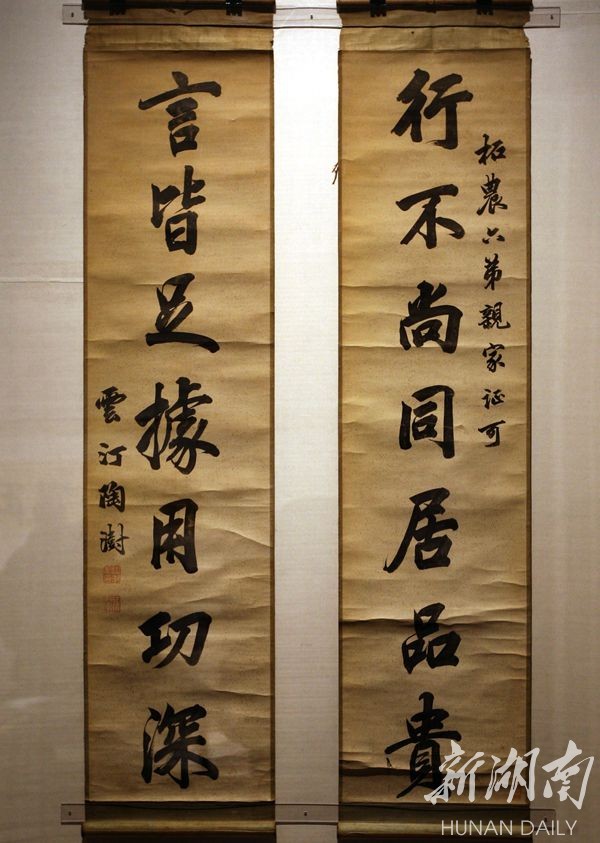 柘農六弟親家証可
行不尚同居品貴
言皆足據用功深
雲汀陶澍
新湖南
HUNAN DAILY